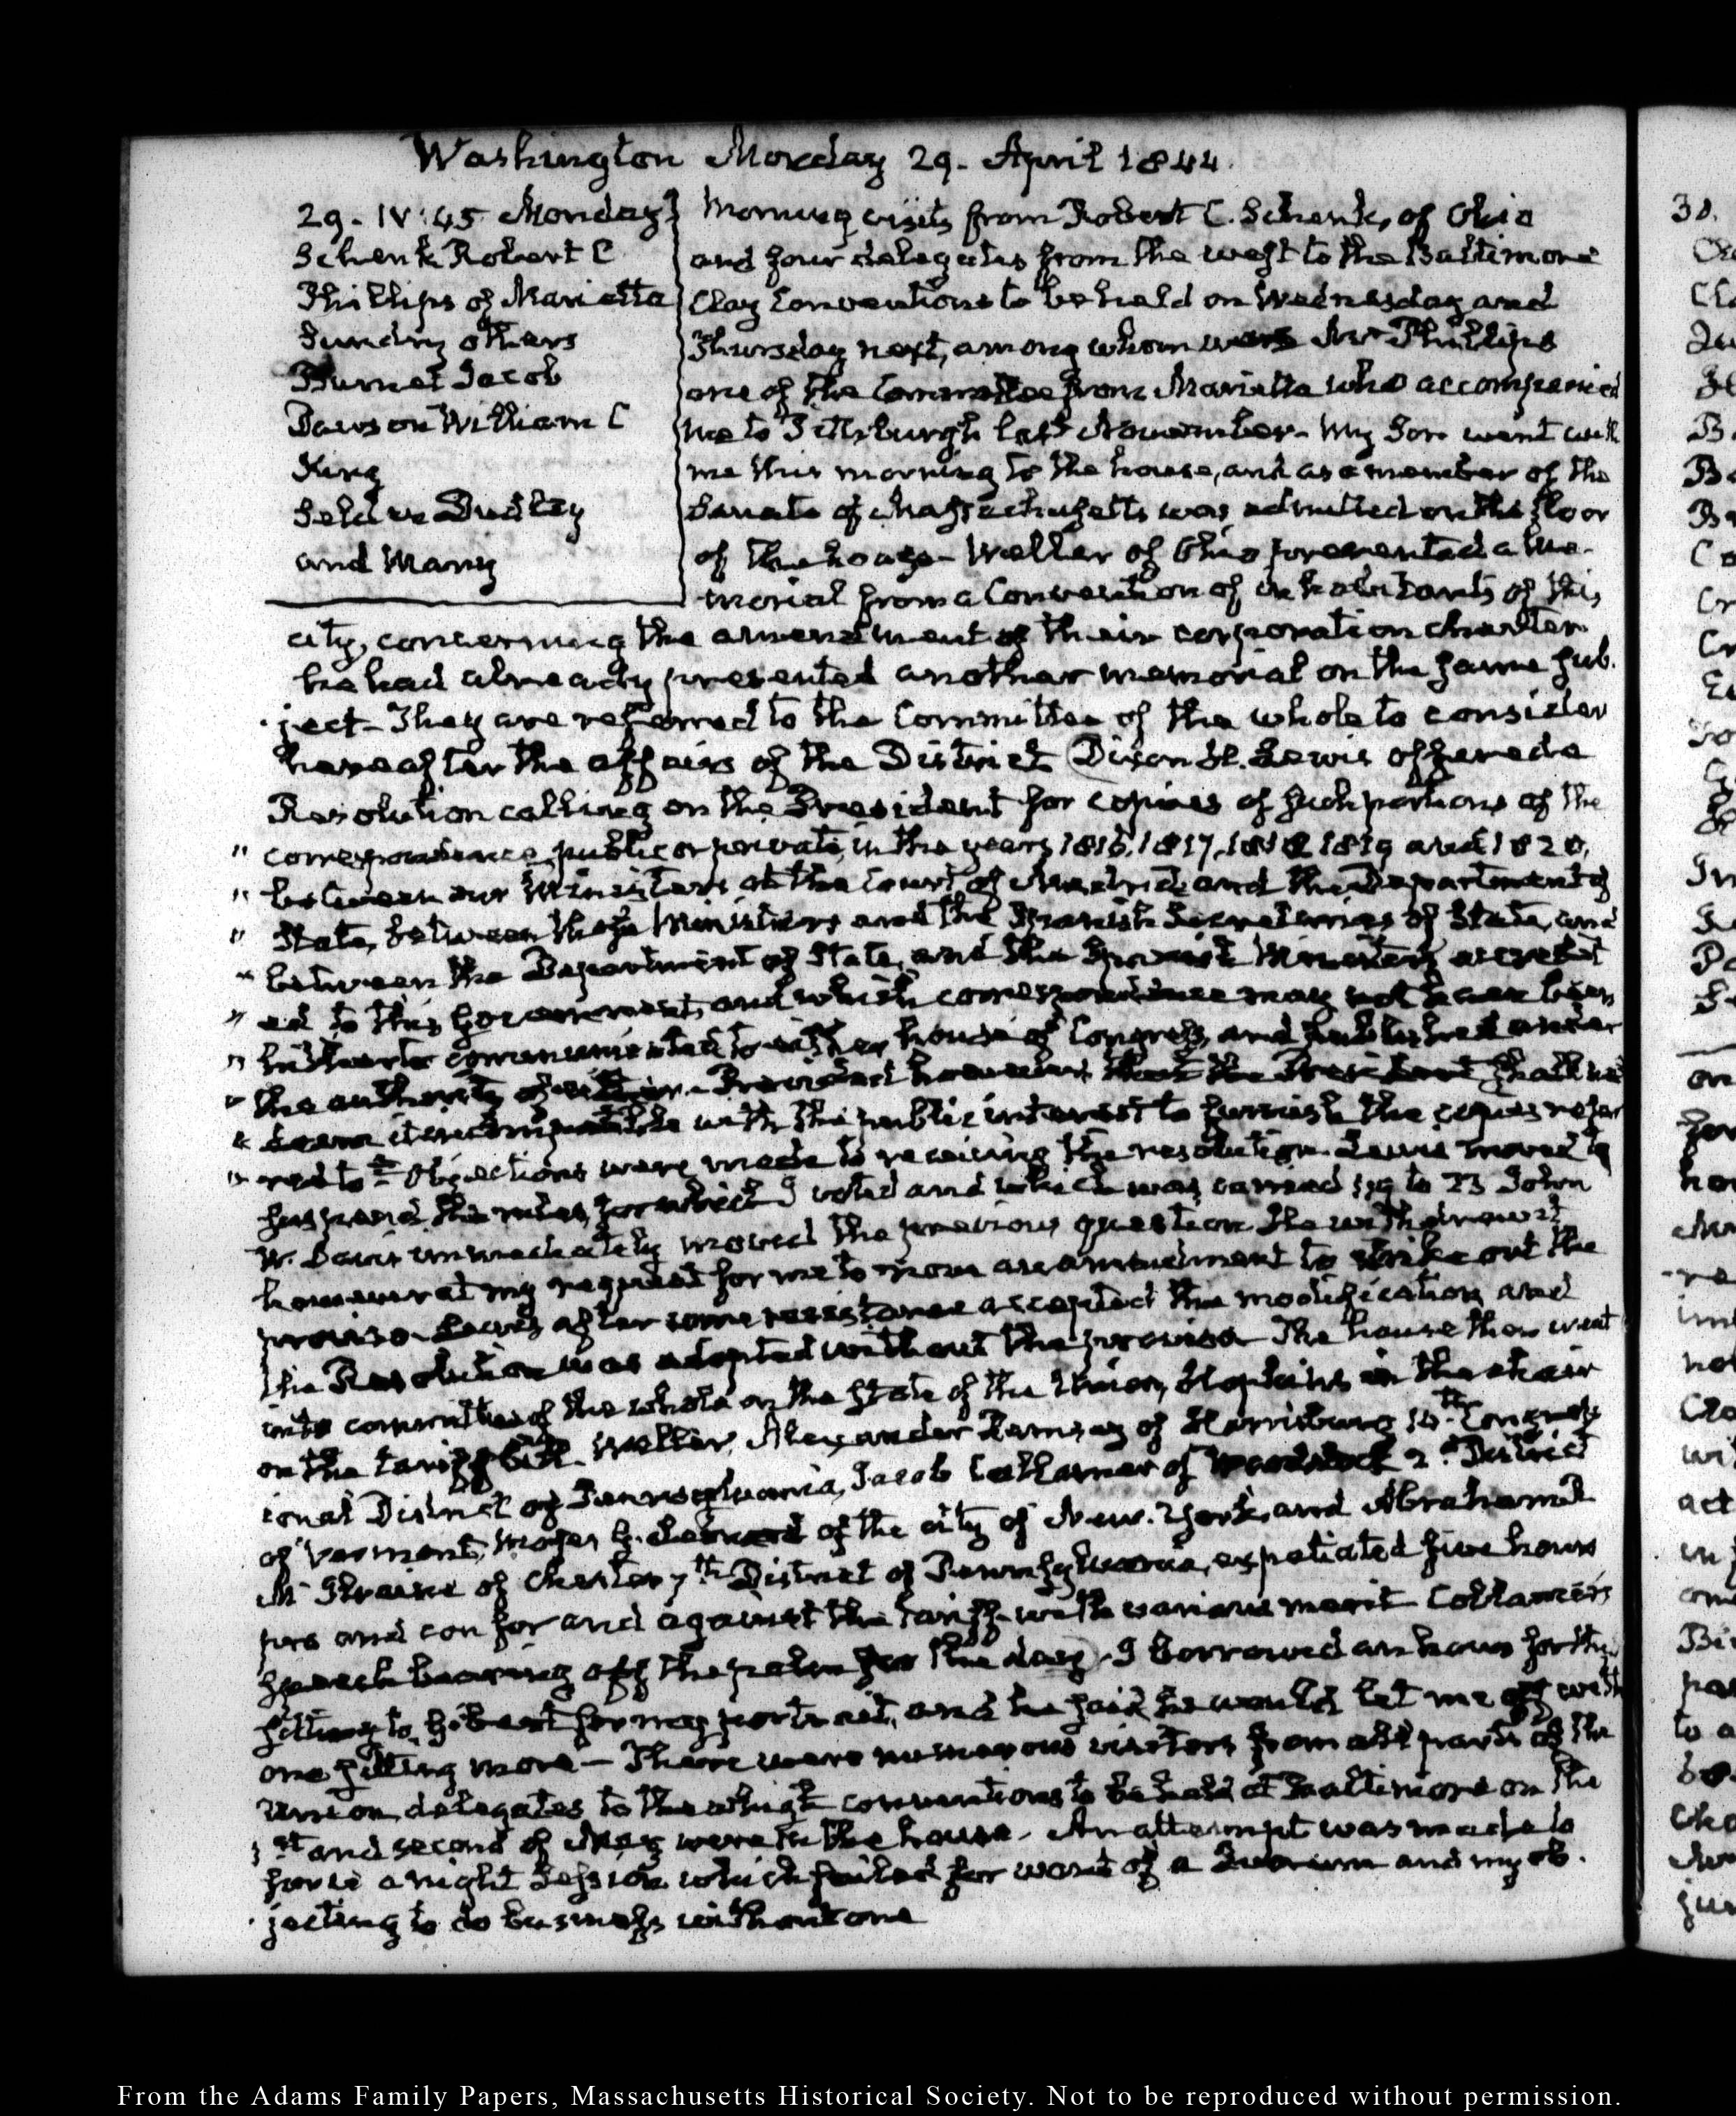 Washington Monday 29. April 1844.
29. IV:45 Monday
Schenk Robert C
Phillips of Marietta
Sundry others
Burnet Jacob
Dawson William C
King
Selden Dudley
and Many
Morning visits from Robert C. Schenk, of Ohio
and four delegates from the west to the Baltimore
Clay Conventions to be held on Wednesday and
Thursday next, among whom was Mr Phillips
one of the Committee from Marietta who accompanied
me to Pittsburgh last November. My Son went with
me this morning to the house, and as a member of the
Senate of Massachusetts was admitted on the floor
of the house- Weller of Ohio presented a me-
morial from a Convention of inhabitants of this
city, concerning the amendment of their corporation charter
he had already presented another memorial on the same sub-
ject- They are referred to the Committee of the whole to consider
hereafter the affairs of the District Dixon H. Lewis offered a
Resolution calling on the President for copies of such portions of the
" correspondence public or private, in the years 1816. 1817. 1818 1819 and 1820,
" between our Ministers at the Court of Madrid and the Department of
" State, between those Ministers and the Spanish Secretaries of State, and
" between the Department of State, and the Spanish Ministers accredit
" ed to this Government, and which correspondence may not have been
" hitherto communicated to either house of Congress, and published under
" the authority of either. Provided however that the President shall not
" deem it incompatible with the public interest to furnish the copies refer
" red to = Objections were made to receiving the resolution. Lewis moved to
suspend the rules, for which I voted and which was carried 119 to 23 John
W. Davis immediately moved the previous question He withdrew it
however at my request for me to move an amendment to strike out the
proviso- Lewis after some resistance accepted the modification and
the Resolution was adopted without the proviso- The house then went
into committee of the whole on the State of the Union, Hopkins in the chair
on the tariff bill. Weller, Alexander Ramsey of Harrisburg 14th Congress
ional District of Pennsylvania, Jacob Collamer of Woodstock 2d District
of Vermont, Moses G. Leonard of the city of New-York, and Abraham R
McIlvaine of Chester 7th District of Pennsylvania, expatiated five hours
pro and con for and against the tariff with various merit Collamer's
speech bearing off the palm for the day. I borrowed an hour for the
sitting to for my portrait, and he said he would let me off with
one sitting more - There were numerous visitors from all parts of the
union, delegates to the whig conventions to be held at Baltimore on the
1st and second of May were in the house. An attempt was made to
force a night Session which failed for want of a Quorum and my ob-
jecting to do business without one
30.
From the Adams Family Papers, Massachusetts Historical Society. Not to be reproduced without permission.